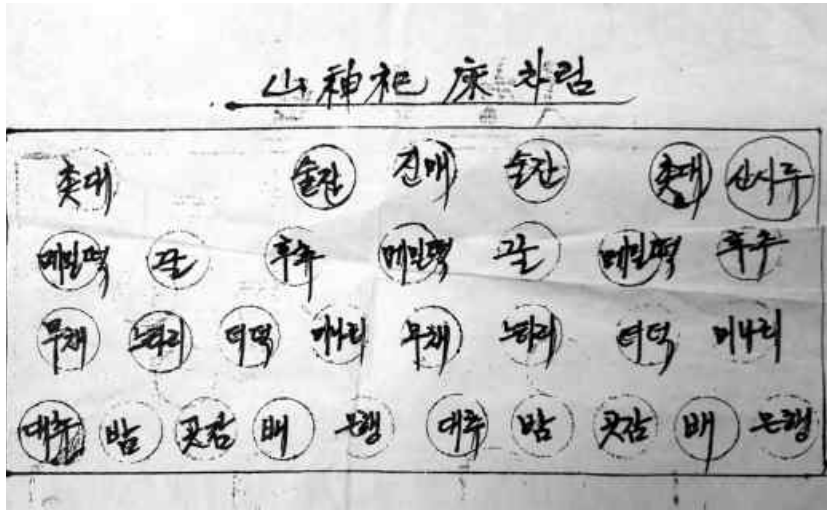 山神祀 床 차림
촛대 술잔 진매 술잔 촛대 산시루
메밀떡 꿀 후추 메밀떡 꿀 메밀떡 후추
무채 느타리 더덕 미나리 무채 느타리 더덕 미나리
대추 밤 곳감 배 은행 대추 밤 곳감 배 은행